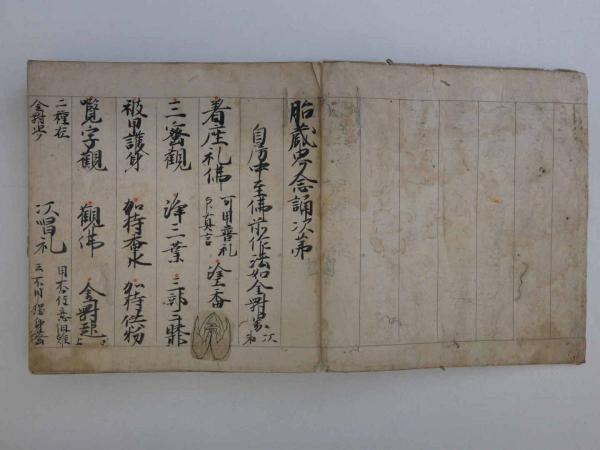 胎蔵界念誦次第
自房中至佛前作法如金剛界次第
着座礼佛 可用普礼 真言 塗香
三密観 浄三業 三部
被甲護身 加持香水 加持供物
覧字観 観佛 金剛起
二種在 金剛界 次唱礼 用否任意